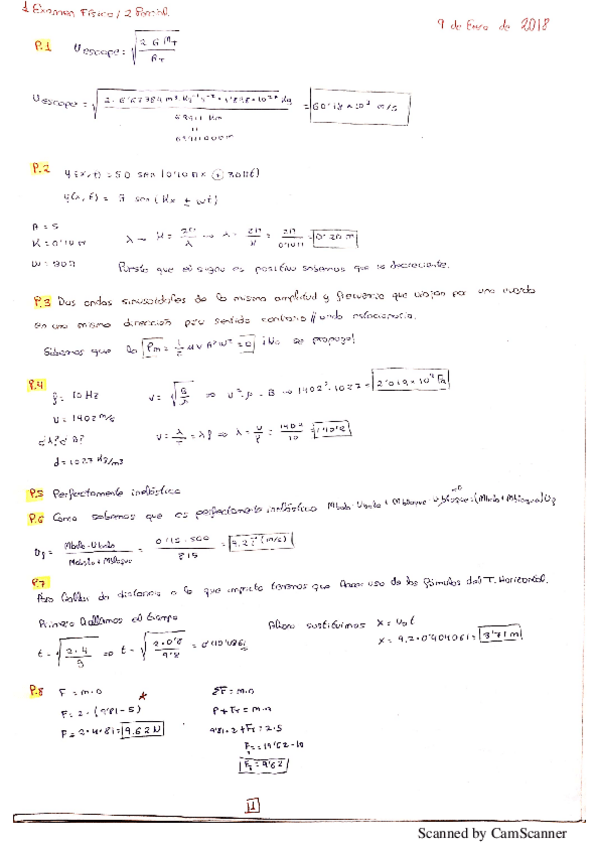 1 Examen Física / 2 Parcial.
9 de Enero de 2018
P.1 Vescape = √(2·G·MT / RT)
Vescape = = 60'18 x 10³ m/s
P.2 y(x,t) = 50 sen (0'10πx + 30πt)
y(x,t) = A sen (Kx ± wt)
A = 5
K = 0'10π
W = 30π
λ → K = 2π/λ → λ = 2π/K = 2π/0'10π = 0'20 m
Puesto que el signo es positivo sabemos que es decreciente.
P.3 Dos ondas sinusoidales de la misma amplitud y frecuencia que viajan por una cuerda
en una misma dirección pero sentido contrario // onda estacionaria.
Sabemos que la Pm = 1/2 μ v A² W² = 0 ¡No se propaga!
P.4
f = 10 Hz
v = 1402 m/s
¿λ? ¿B?
d = 1027 kg/m³
v = √(B/ρ) ⇒ v²·ρ = B → 1402²·1027 = 2'019 x 10⁹ Pa
v = λ·f ⇒ λ = v/f = 1402/10 = 140'2
P.5 Perfectamente inelástico
P.6 Como sabemos que es perfectamente inelástico Mbala·Vbala + Mbloque·Vbloque = (Mbala + Mbloque) Vf
Vf = Mbala·Vbala / Mbala + Mbloque = 0'15·500 / 815 = 9.2 (m/s)
P.7
Para hallar la distancia a la que impacta tenemos que hacer uso de las fórmulas del T. Horizontal.
Primero hallamos el tiempo
Ahora sustituimos x = v₀t
t = √(2·y / g) ⇒ t = √(2·0'8 / 9'8) = 0'404061 s
x = 9,2·0'404061 = 3'71 m
P.8 F = m·a
F = 2·(9'81-5)
F = 2·4'81 = 9.62 N
ΣF = m·a
P + Fr = m·a
9'81·2 + Fr = 2·5
Fr = 19'62-10
Fr = 9'62
1
Scanned by CamScanner